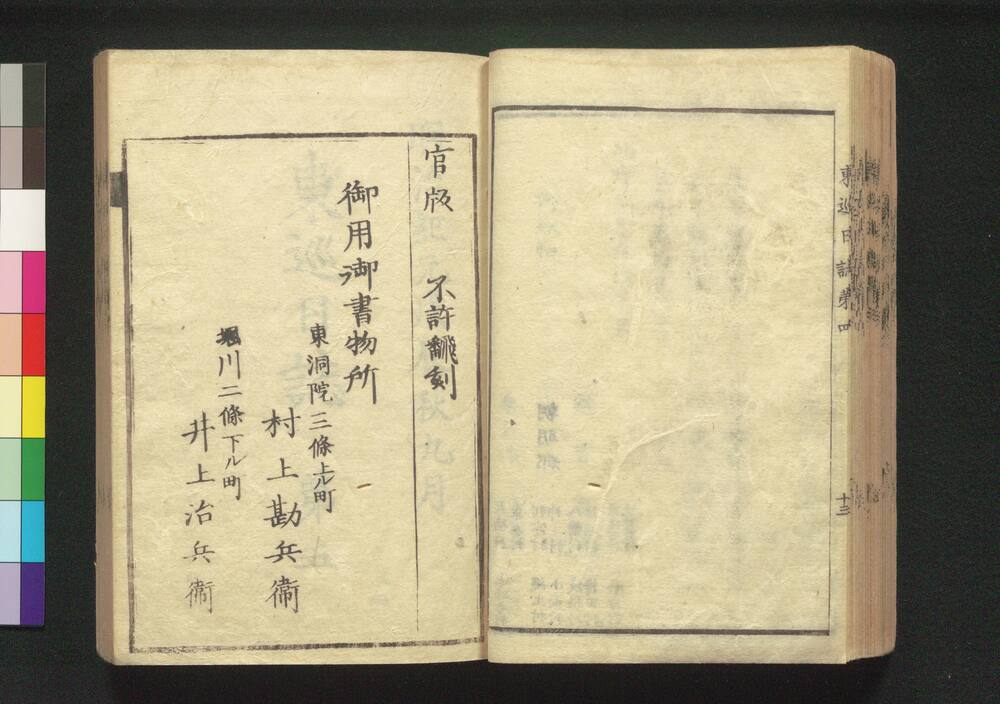 東巡日誌第四
十三
官版 不許翻刻
御用御書物所
東洞院三條上ル町
村上勘兵衞
堀川二條下ル町
井上治兵衞